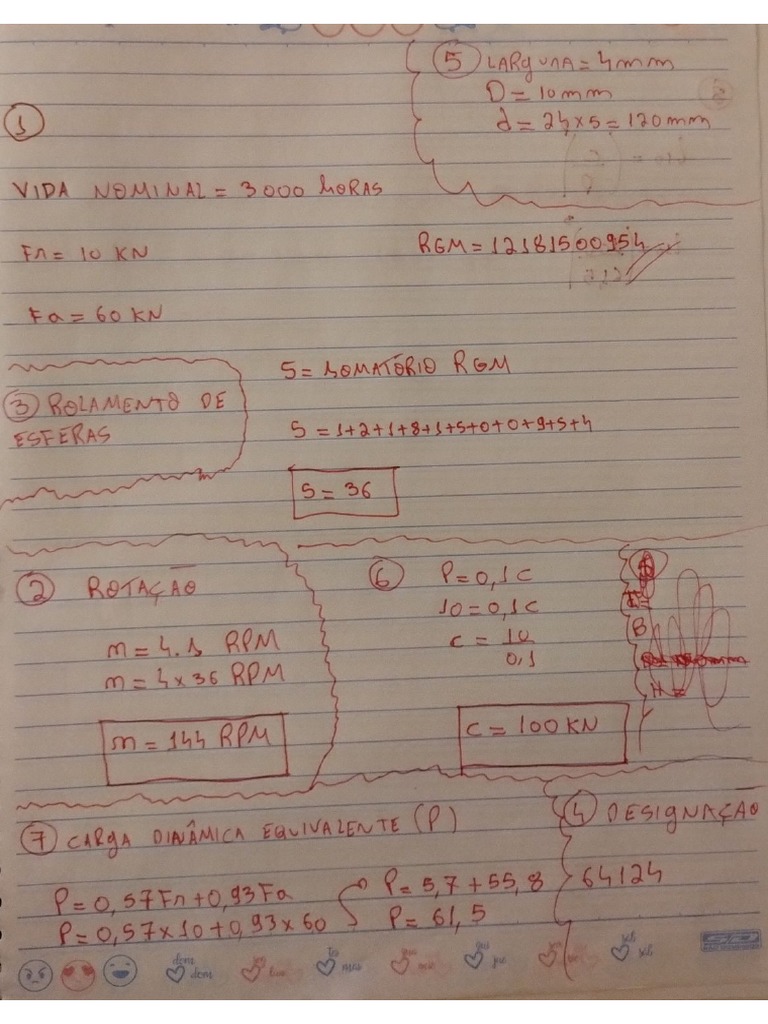 5 LARGURA = 4mm
D = 10mm
d = 24x5 = 120mm
1
VIDA NOMINAL = 3000 HORAS
Fr = 10 KN
RGM = 12181500954
Fa = 60 KN
S = SOMATÓRIO RGM
3 ROLAMENTO DE
ESFERAS
S = 1+2+1+8+1+5+0+0+9+5+4
S = 36
2 ROTAÇÃO
n = 4.s RPM
n = 4x36 RPM
n = 144 RPM
6 P = 0,1C
10 = 0,1C
C = 10
0,1
C = 100KN
7 CARGA DINÂMICA EQUIVALENTE (P)
P = 0,57Fr + 0,93Fa
P = 0,57x10 + 0,93x60
P = 5,7 + 55,8
P = 61,5
4 DESIGNAÇÃO
64124